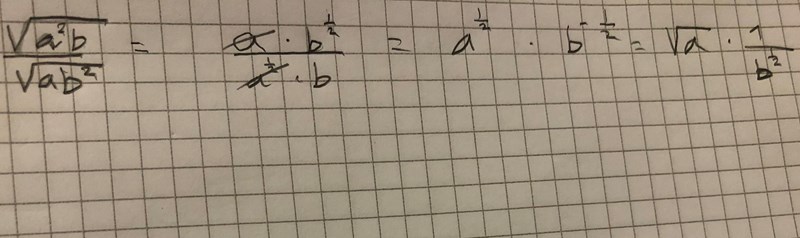 √(a²b) / √(ab²) = a · b^(1/2) / a^(1/2) · b = a^(1/2) · b^(-1/2) = √a · 1/b²